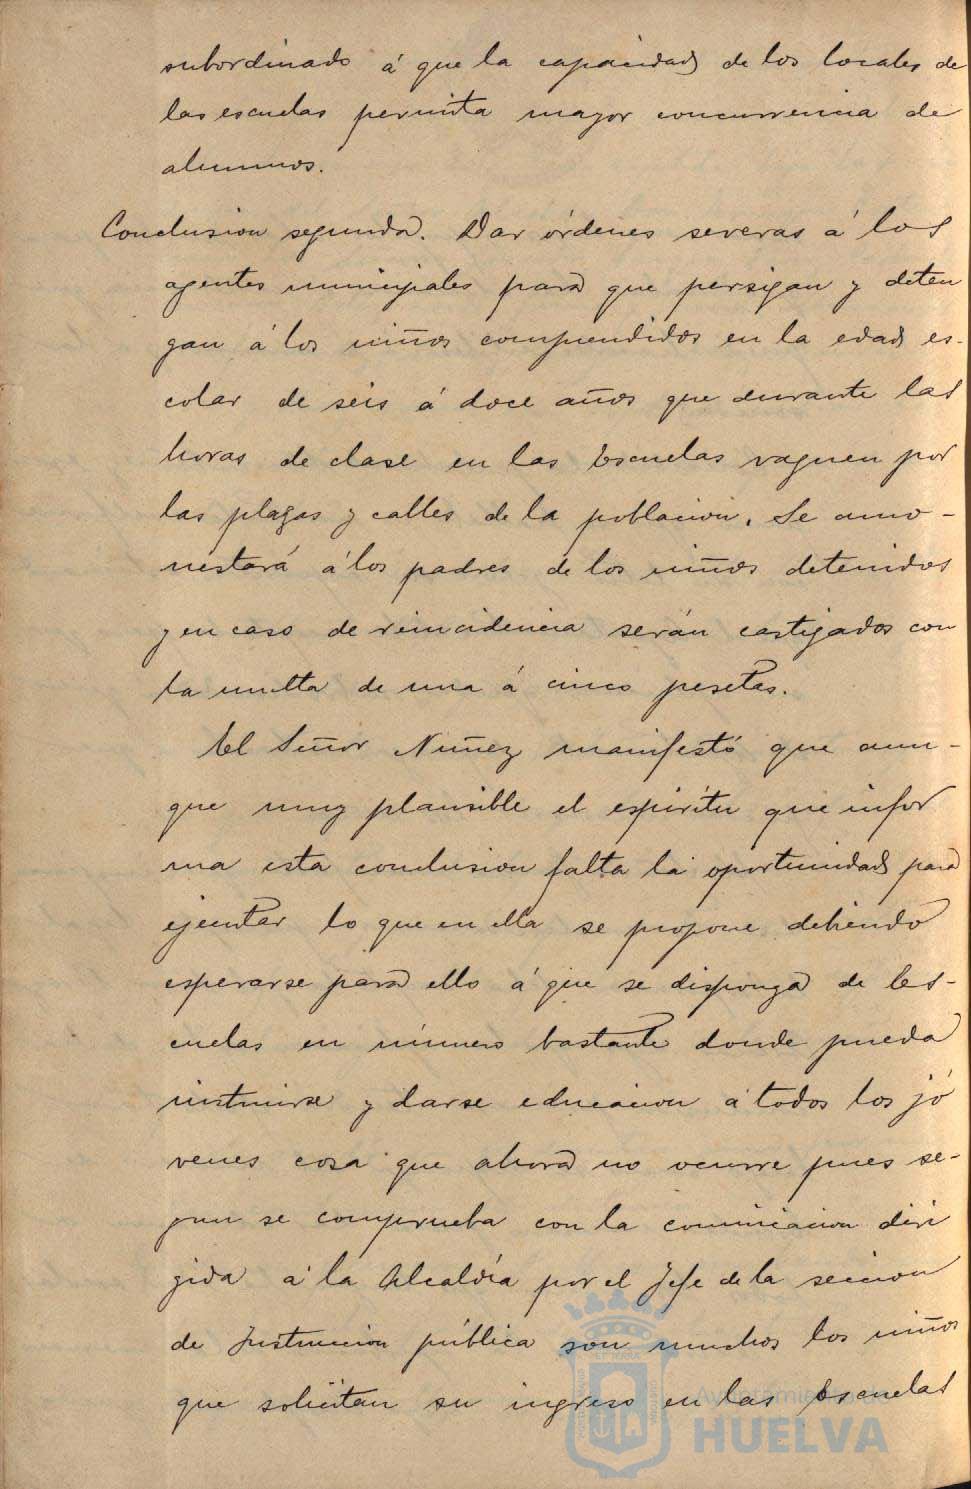 subordinado á que la capacidad de los locales de
las escuelas permita mayor concurrencia de
alumnos.
Conclusion segunda. Dar órdenes severas á los
agentes municipales para que persigan y deten
gan á los niños comprendidos en la edad es-
colar de seis á doce años que durante las
horas de clase en las Escuelas vaguen por
las plazas y calles de la poblacion. Se amo-
nestará á los padres de los niños detenidos
y en caso de reincidencia serán castigados con
la multa de una á cinco pesetas.
El Señor Nuñez manifestó que aun-
que muy plausible el espíritu que infor
ma esta conclusion falta la oportunidad para
ejecutar lo que en ella se propone debiendo
esperarse para ello á que se disponga de Es-
cuelas en número bastante donde pueda
instruirse y darse educacion á todos los jó
venes cosa que ahora no ocurre pues se-
gun se comprueba con la comunicacion diri
gida á la Alcaldía por el Jefe de la seccion
de Instruccion pública son muchos los niños
que solicitan su ingreso en las Escuelas
Ayuntamiento de
HUELVA